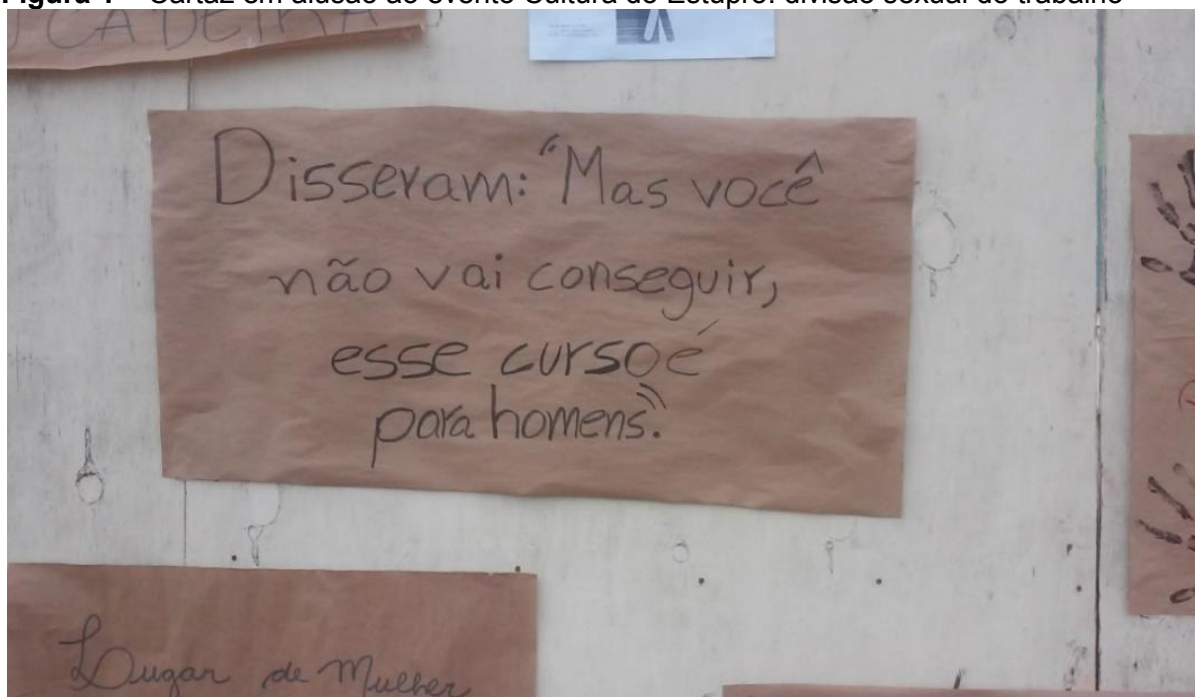 Cartaz em alusão ao evento Cultura do Estupro: divisão sexual do trabalho
Disseram: “Mas você
não vai conseguir,
esse curso é
para homens”.
Lugar de Mulher